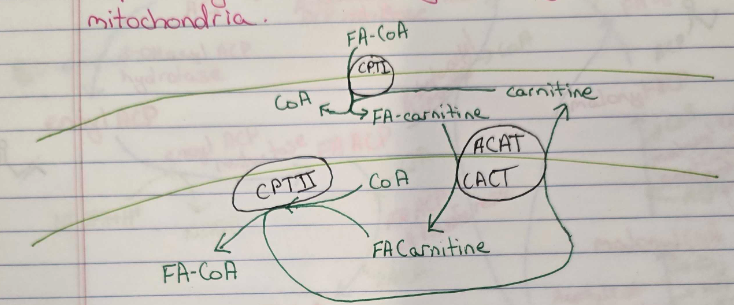 mitochondria.
FA-CoA
CPTI
CoA
carnitine
FA-carnitine
ACAT
CACT
CPTII
CoA
FACarnitine
FA-CoA